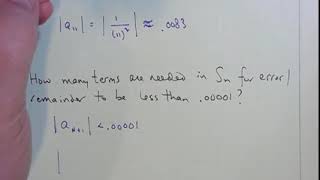 |a₁₁| = |1/(11)²| ≈ .0083
How many terms are needed in Sn for error/
remainder to be less than .00001?
|a_{N+1}| < .00001
|